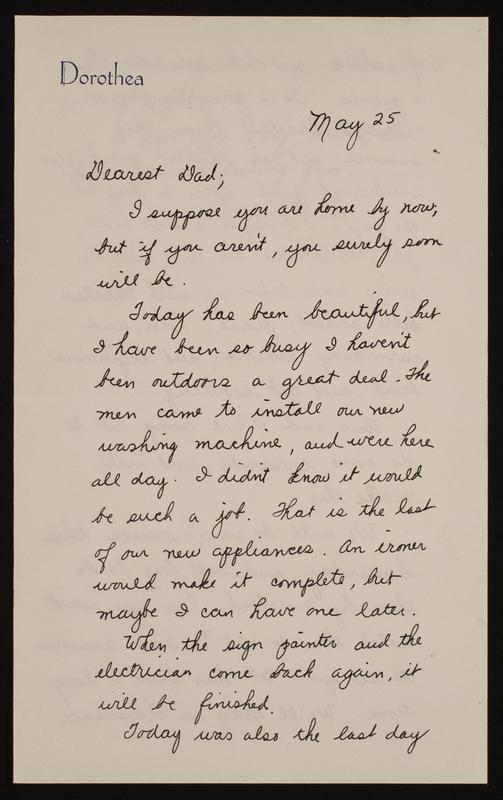 Dorothea
May 25
Dearest Dad;
I suppose you are home by now;
but if you aren't, you surely soon
will be.
Today has been beautiful, but
I have been so busy I haven't
been outdoors a great deal. The
men came to install our new
washing machine, and were here
all day. I didn't know it would
be such a job. That is the last
of our new appliances. An ironer
would make it complete, but
maybe I can have one later.
When the sign painter and the
electrician come back again, it
will be finished.
Today was also the last day